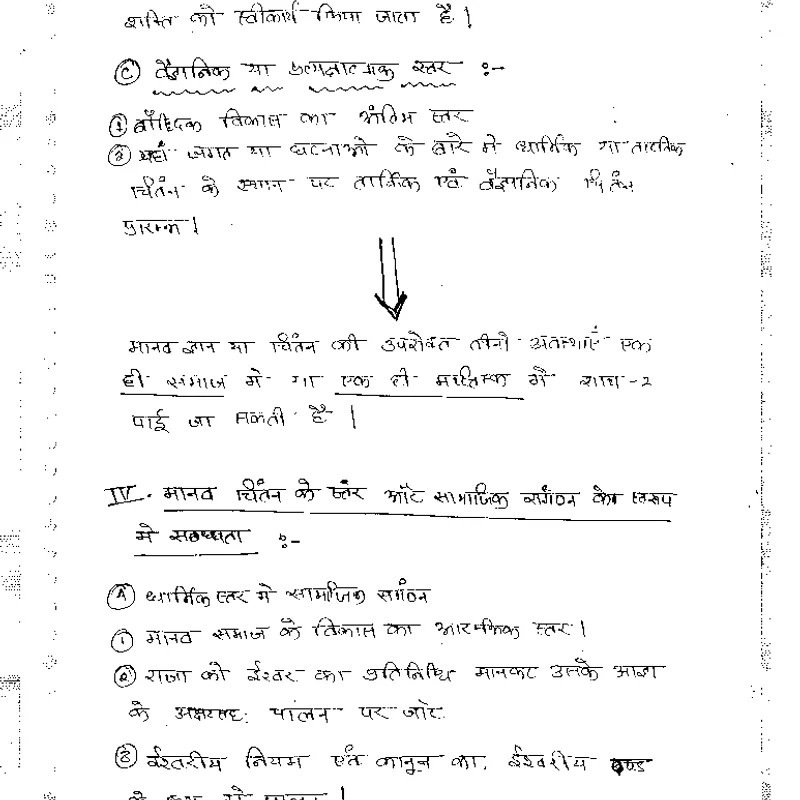 शक्ति को स्वीकार्य किया जाता है।
(C) वैज्ञानिक या प्रत्यक्षात्मक स्तर :-
① बौद्धिक विकास का अंतिम स्तर
② यहाँ जगत या घटनाओं के बारे में धार्मिक या तात्विक
चिंतन के स्थान पर तार्किक एवं वैज्ञानिक चिंतन
प्रारम्भ।
मानव ज्ञान या चिंतन की उपरोक्त तीनों अवस्थाएँ एक
ही समाज में या एक ही मस्तिष्क में साथ-2
पाई जा सकती है।
IV. मानव चिंतन के स्तर और सामाजिक संगठन के स्वरूप
में सम्बध्यता :-
(A) धार्मिक स्तर में सामाजिक संगठन
① मानव समाज के विकास का आरम्भिक स्तर।
② राजा को ईश्वर का प्रतिनिधि मानकर उनके आज्ञा
के अक्षरतह: पालन पर जोर
③ ईश्वरीय नियम एवं कानून का, ईश्वरीय दण्ड